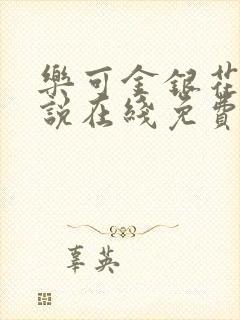 樂可金銀花
說在綫免費
辜英